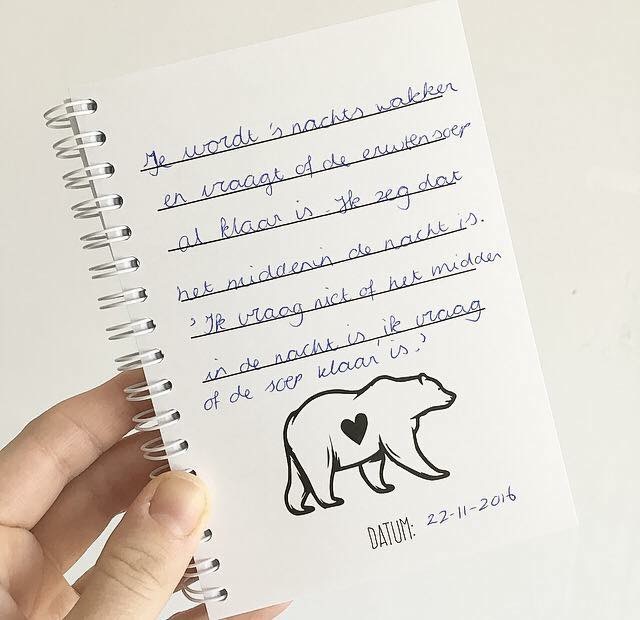 Je wordt 's nachts wakker
en vraagt of de erwtensoep
al klaar is. Ik zeg dat
het middenin de nacht is.
'Ik vraag niet of het midden
in de nacht is, ik vraag
of de soep klaar is.'
DATUM: 22-11-2016